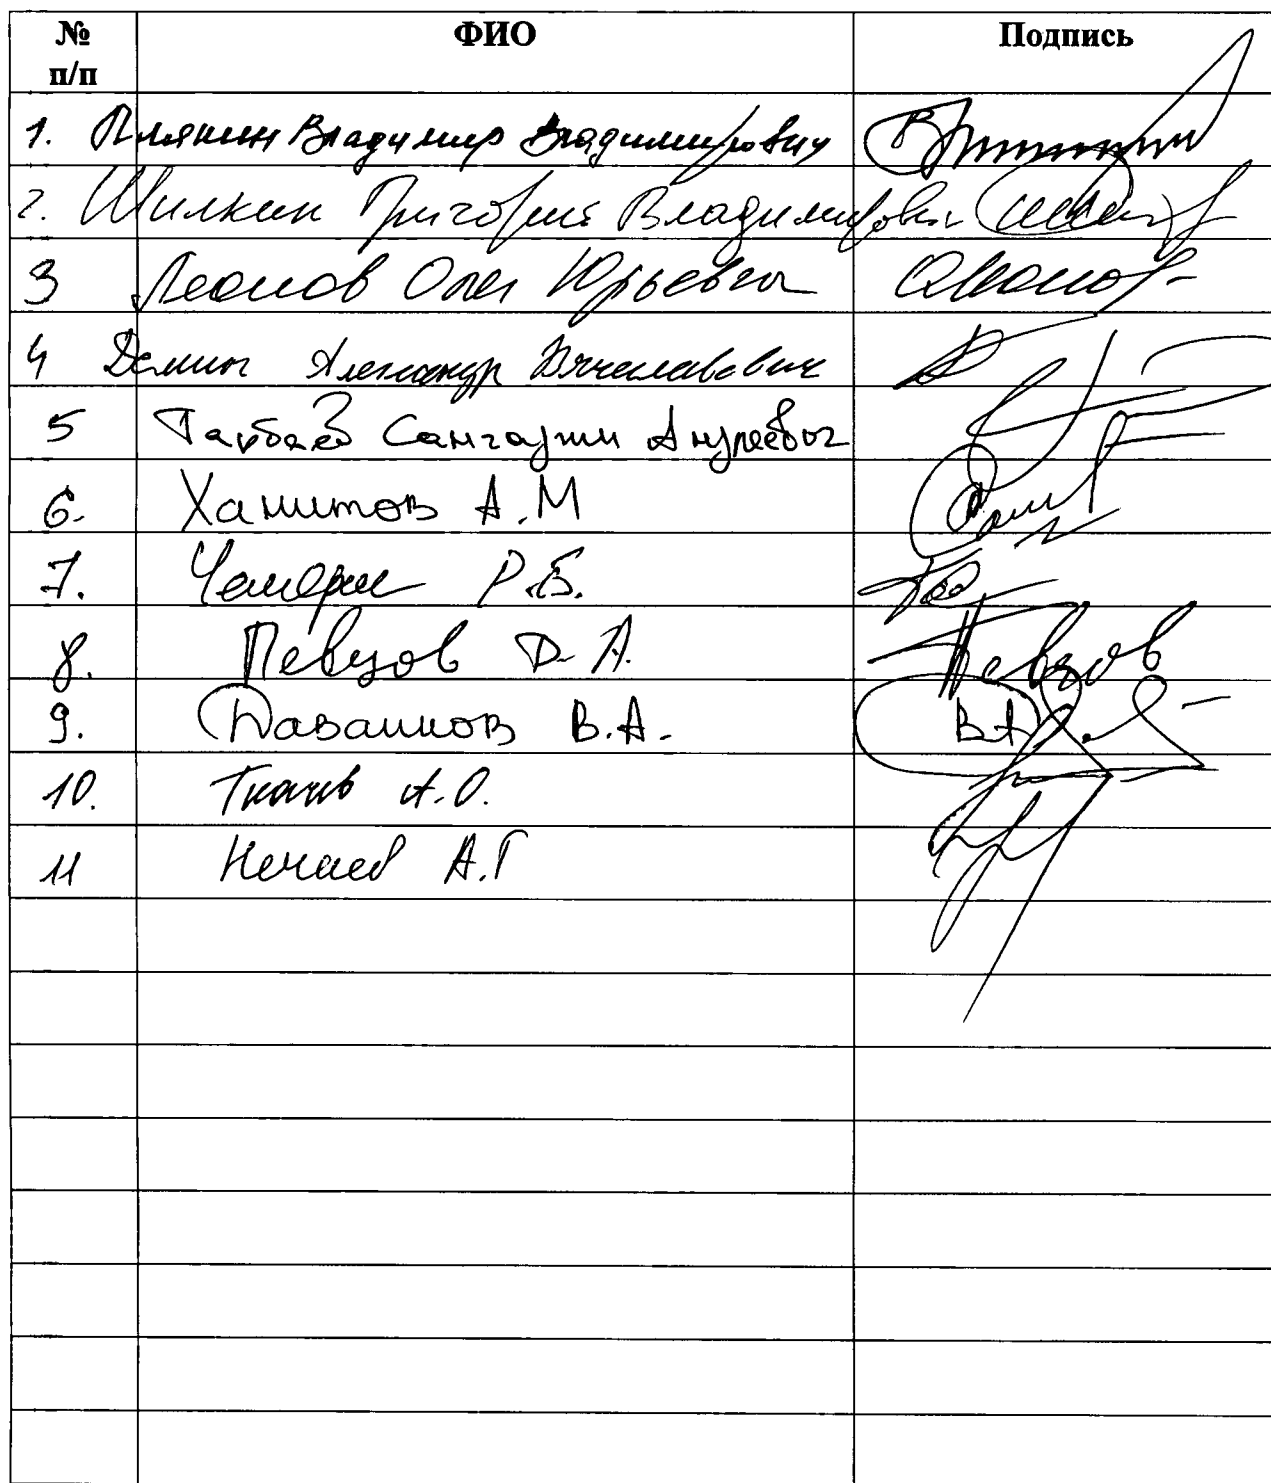 № п/п ФИО Подпись
1. Плякин Владимир Владимирович
2. Шилкин Григорий Владимирович
3 Леонов Олег Юрьевич
4 Демин Александр Вячеславович
5 Тарбаев Сангаджи Андреевич
6. Хамитов А.М
7. Чемерис Р.Б.
8. Певцов Д.А. Певцов
9. Даванков В.А. В.А
10. Ткачев А.О.
11 Нечаев А.Г